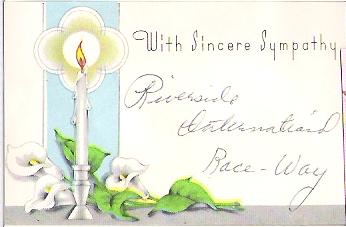 With Sincere Sympathy
Riverside
International
Race-Way